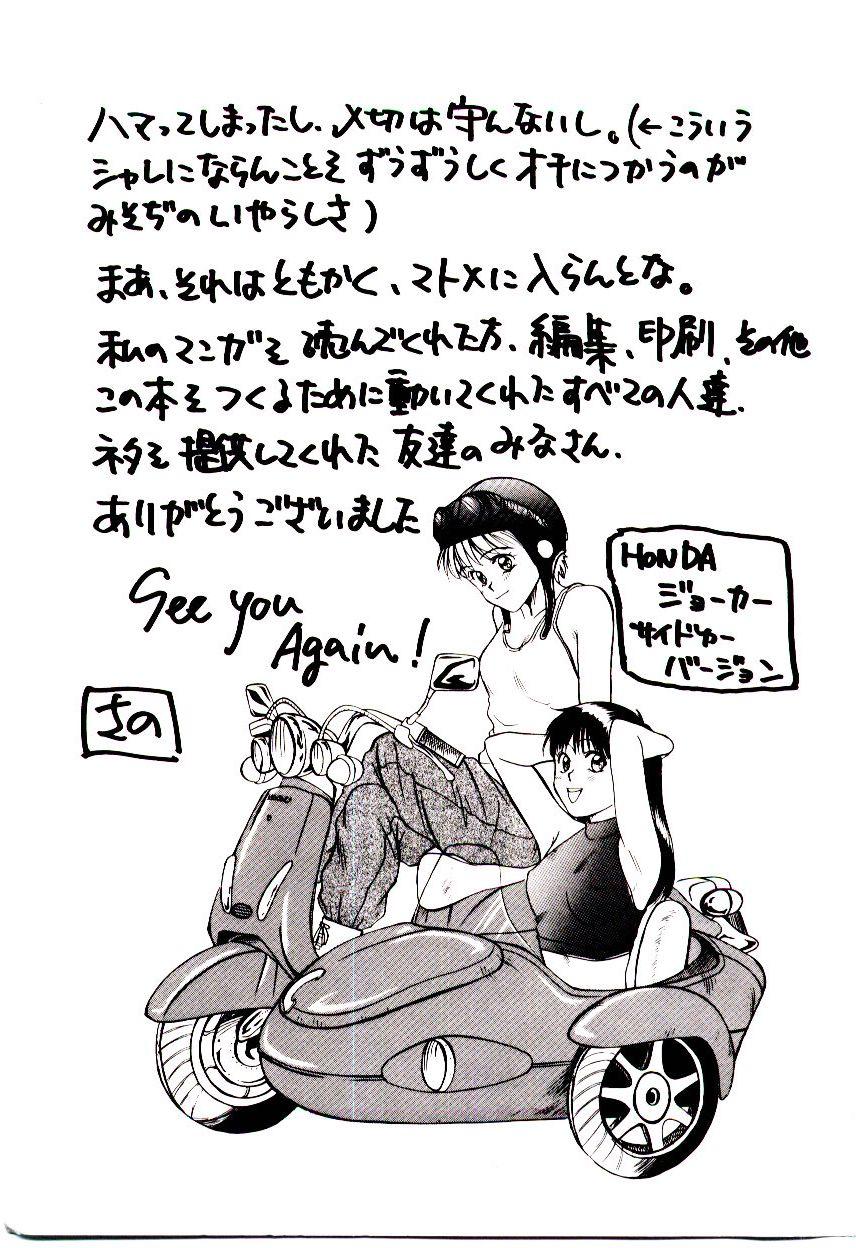 ハマってしまったし、〆切は守んないし。(←こういう
シャレにならんことを ずうずうしく オチにつかうのが
みそぢの いやらしさ)
まあ、それはともかく、マトメに入らんとな。
私のマンガを 読んでくれた方、編集、印刷、その他
この本を つくるために 動いてくれた すべての人達、
ネタを 提供してくれた 友達のみなさん、
ありがとうございました
See you
Again!
さの
HONDA
ジョーカー
サイドカー
バージョン